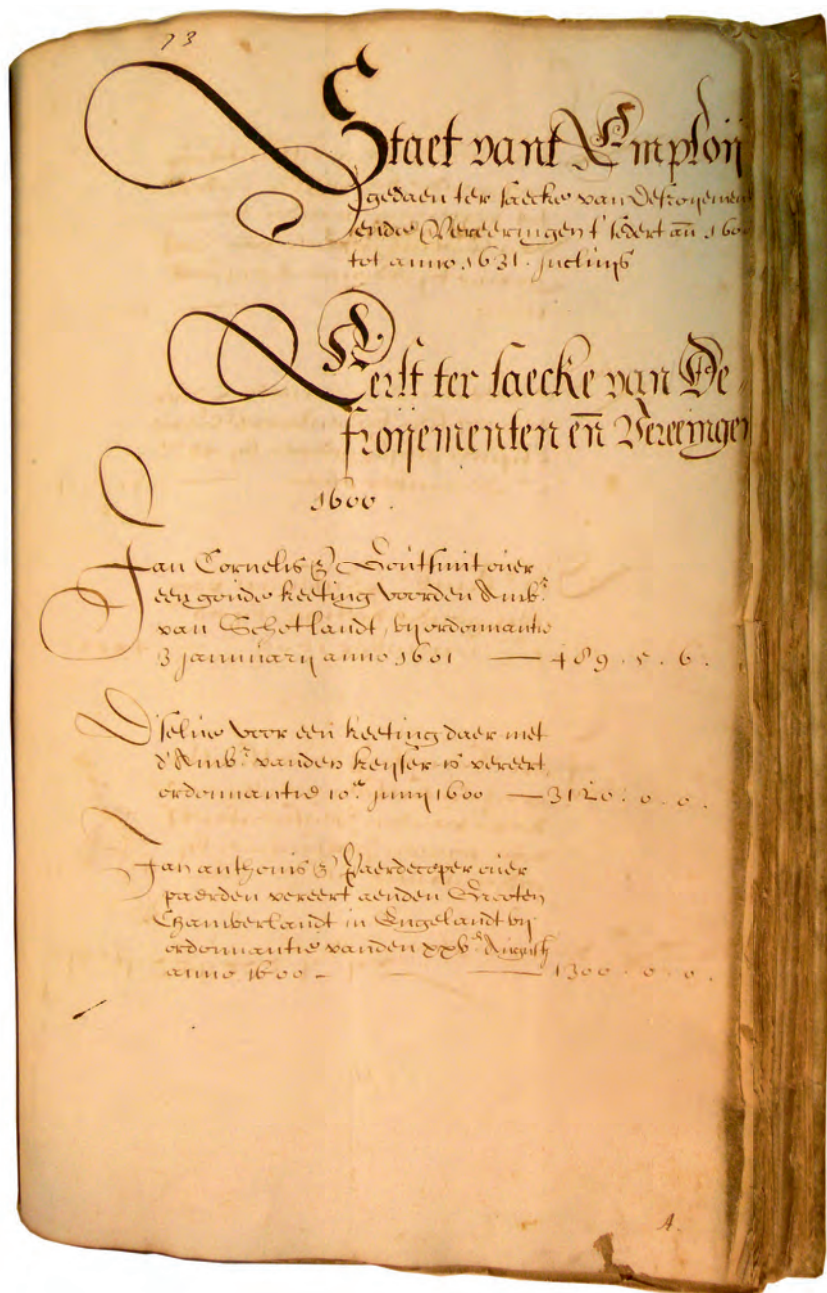 73
Staet vant Employ
gedaen ter saecke van defroyemen
ende Vereeringen t'sedert an̄ 160
tot anno 1631. inclŭijs
Eerst ter saecke van De
froijementen en̄ Vereeringen
1600.
Jan Cornelis Z Goŭtsmit over
een goŭde keeting voorden Amb.r
van Schotlandt, bij ordonnantie
3 Janŭŭarij anno 1601 — 489. 5. 6.
D'selve voor een keeting daer met
d'Amb.r vanden keijser is vereert
ordonnantie 10.e Junij 1600 — 3120. 0. 0.
Jan anthonis Z Paerdecoper over
paerden vereert aenden Grooten
Chamberlandt in Engelandt bij
ordonnantie vanden xxv.e Augusti
anno 1600 — 1300. 0. 0.
A.